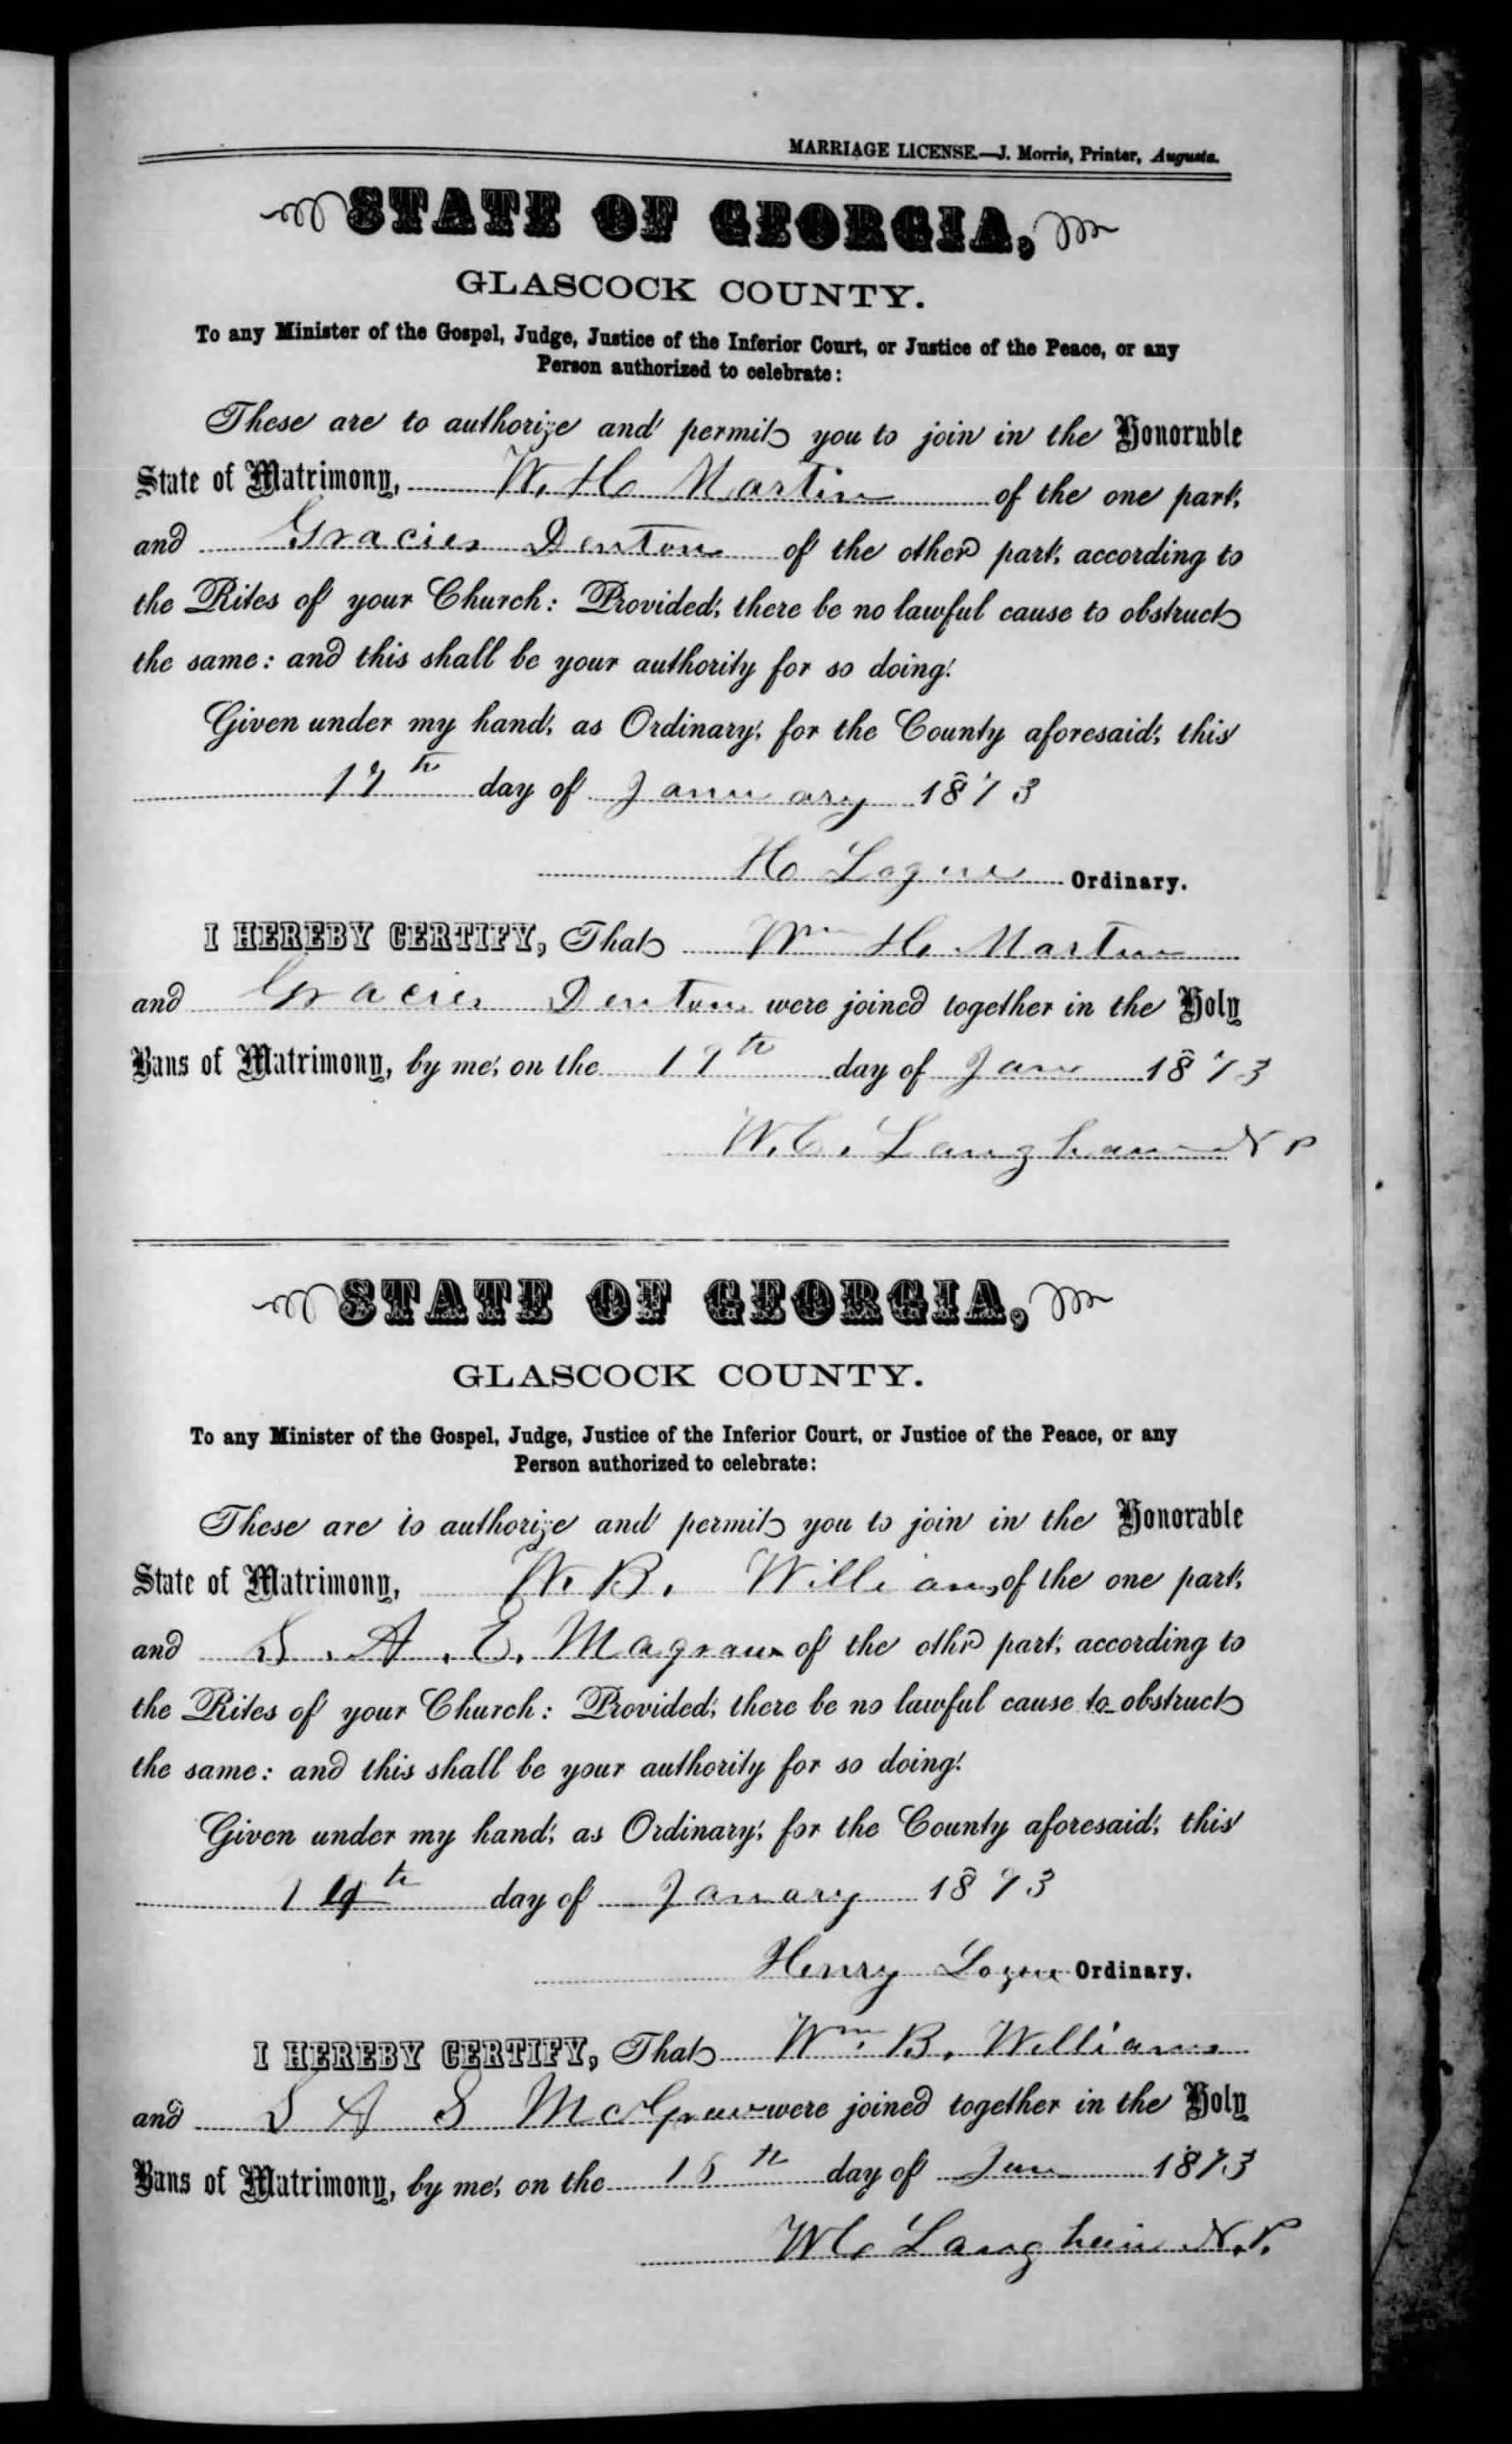 MARRIAGE LICENSE.—J. Morris, Printer, Augusta.
STATE OF GEORGIA,
GLASCOCK COUNTY.
To any Minister of the Gospel, Judge, Justice of the Inferior Court, or Justice of the Peace, or any
Person authorized to celebrate:
These are to authorize and permit you to join in the Honorable
State of Matrimony, W. H Martin of the one part,
and Gracien Denton of the other part, according to
the Rites of your Church: Provided, there be no lawful cause to obstruct
the same: and this shall be your authority for so doing.
Given under my hand, as Ordinary, for the County aforesaid, this
17th day of January 1873
H Logue Ordinary.
I HEREBY CERTIFY, That Wm H. Martin
and Gracien Denton were joined together in the Holy
Bans of Matrimony, by me, on the 17th day of Jan 1873
W. C. Langham N P
STATE OF GEORGIA,
GLASCOCK COUNTY.
To any Minister of the Gospel, Judge, Justice of the Inferior Court, or Justice of the Peace, or any
Person authorized to celebrate:
These are to authorize and permit you to join in the Honorable
State of Matrimony, W. B. Williams of the one part,
and S. A. E. Magraw of the othr part, according to
the Rites of your Church: Provided, there be no lawful cause to obstruct
the same: and this shall be your authority for so doing.
Given under my hand, as Ordinary, for the County aforesaid, this
14th day of January 1873
Henry Logue Ordinary.
I HEREBY CERTIFY, That Wm. B. Williams
and S A S McGraw were joined together in the Holy
Bans of Matrimony, by me, on the day of Jan 1873
W C Langham N. P.